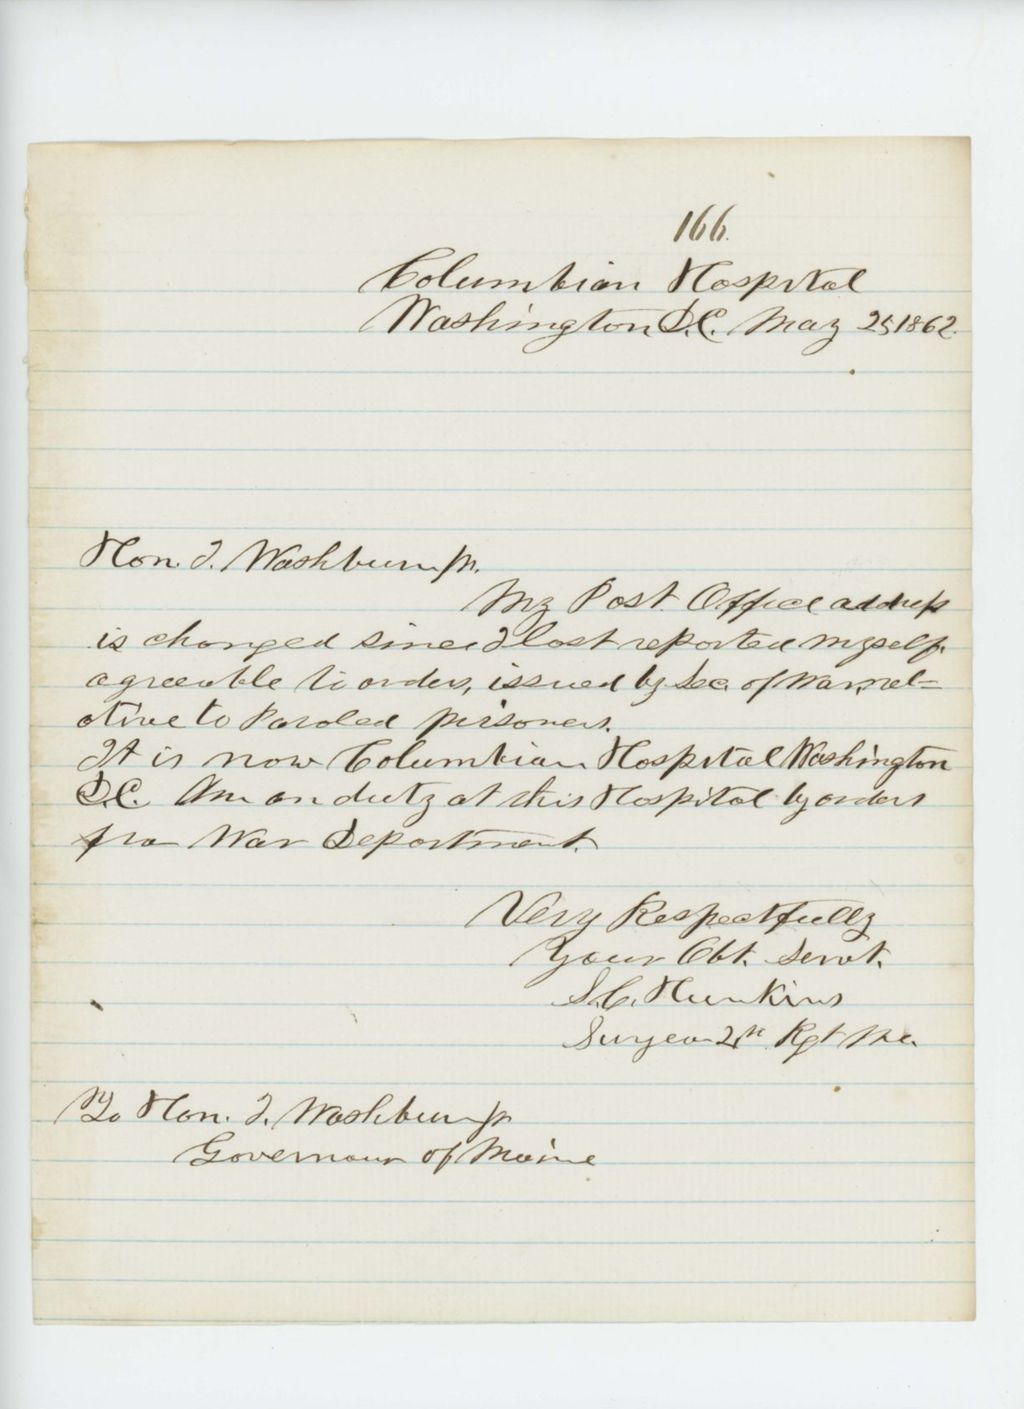 166.
Columbian Hospital
Washington, D.C. May 25 1862.
Hon. I. Washburn Jr.
My Post Office address
is changed since I last reported myself,
agreeable to orders, issued by Sec. of War, rel=
ative to Paroled prisoners.
It is now Columbian Hospital Washington
D.C. Am on duty at this Hospital by orders
from War Department.
Very Respectfully
Your Obt. Servt.
S. C. Hunkins
Surgeon Rgt Me.
To Hon. I. Washburn Jr
Governour of Maine